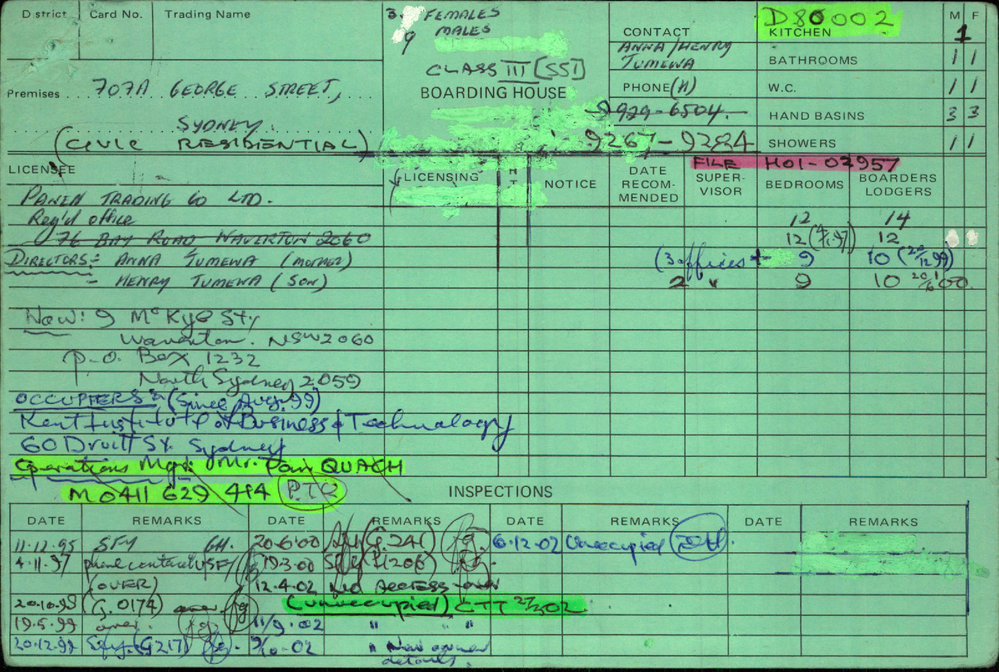 District
Card No.
Trading Name
Premises
707A GEORGE STREET,
SYDNEY.
(CIVIC RESIDENTIAL)
3. FEMALES
9 MALES
CLASS III (SSI)
BOARDING HOUSE
CONTACT
ANNA/HENRY
TUMEWA
PHONE (H)
9929-6504
9267-9284
D80002
M F
KITCHEN 1
BATHROOMS 1 1
W.C. 1 1
HAND BASINS 3 3
SHOWERS 1 1
FILE H01-03957
LICENSEE
PANEN TRADING CO LTD.
Reg'd office
76 BAY ROAD WAVERTON 2060
DIRECTORS:- ANNA TUMEWA (MOTHER)
- HENRY TUMEWA (SON)
New: 9 McKye St
Waverton. NSW 2060
P.O. Box 1232
North Sydney 2059
OCCUPIERS:- (Since Aug. 99)
Kent Institute of Business & Technology
60 Druitt St. Sydney
Operations Mgr: Mr. Dan QUACH
M 0411 629 414 PTO
LICENSING
NOTICE
DATE RECOM-MENDED
SUPER-VISOR
BEDROOMS
BOARDERS LODGERS
12 14
12 (4/11/97) 12
(3 offices + 9 10 (20/12/99)
2 " 9 10 20/6/00
INSPECTIONS
DATE REMARKS DATE REMARKS DATE REMARKS DATE REMARKS
11-12-95 SFY GH. 20-6-00 (G.241) 6.12.02 Unoccupied
4.11.97 phone contact SFY
(OVER) 12.4.02 NO ACCESS over
20.10.98 (G.0174) over (Unoccupied) CTT
19.5.99 over 11/9.02 " " "
20.12.99 Sfy. (G217) 9/10-02 " New owner
details.